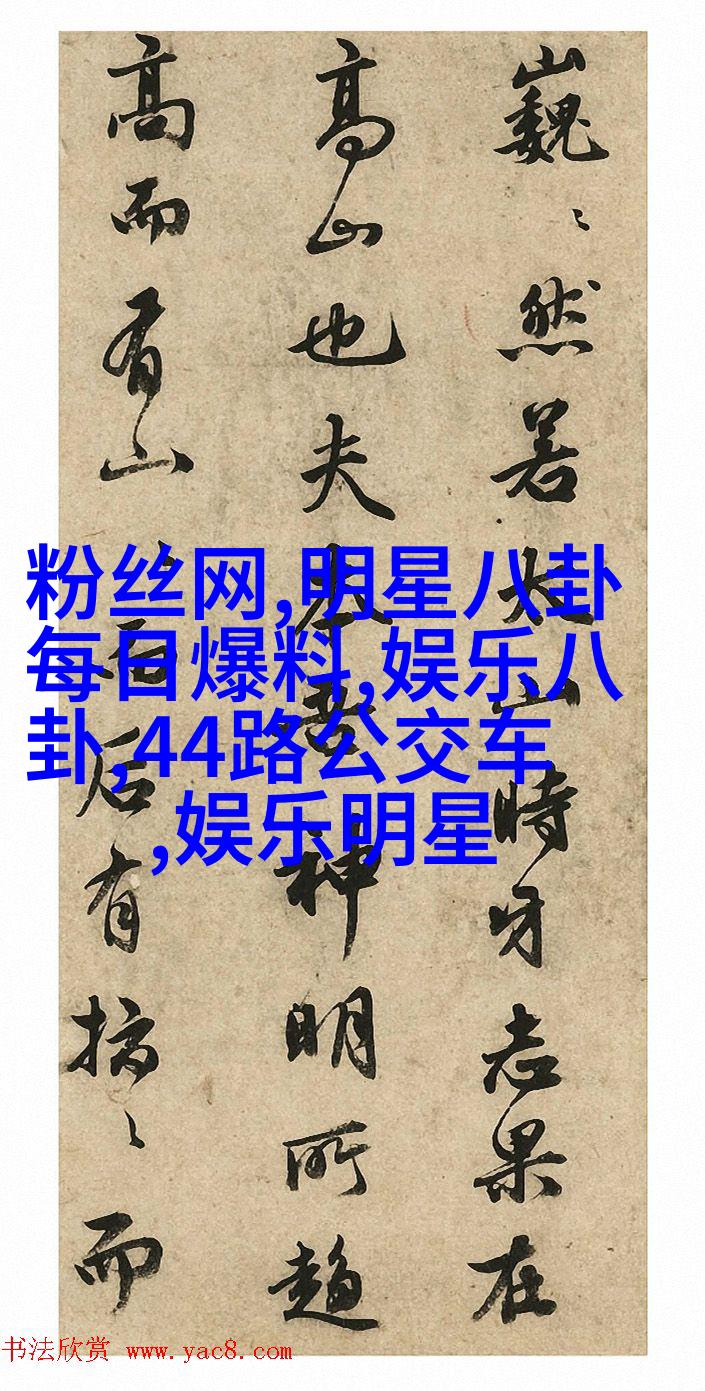 巍〻然若太山時牙志果在
高山也夫本吾神明所趨
高而有山而后有搞〻而
粉丝网,明星八卦
每日爆料,娱乐八
卦,44路公交车
,娱乐明星
书法欣赏 www.yac8.com